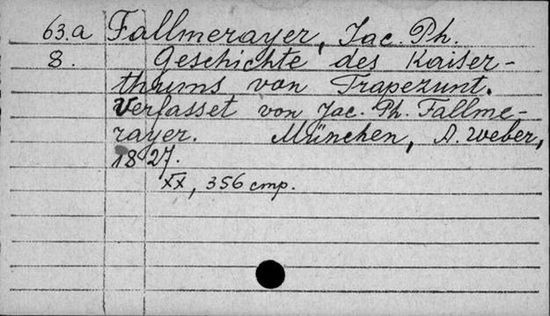 63.a Fallmerayer, Jac. Ph.
8. Geschichte des Kaiser-
thums von Trapezunt.
Verfasset von Jac. Ph. Fallme-
rayer. München, A. Weber,
1827.
XX, 356 стр.